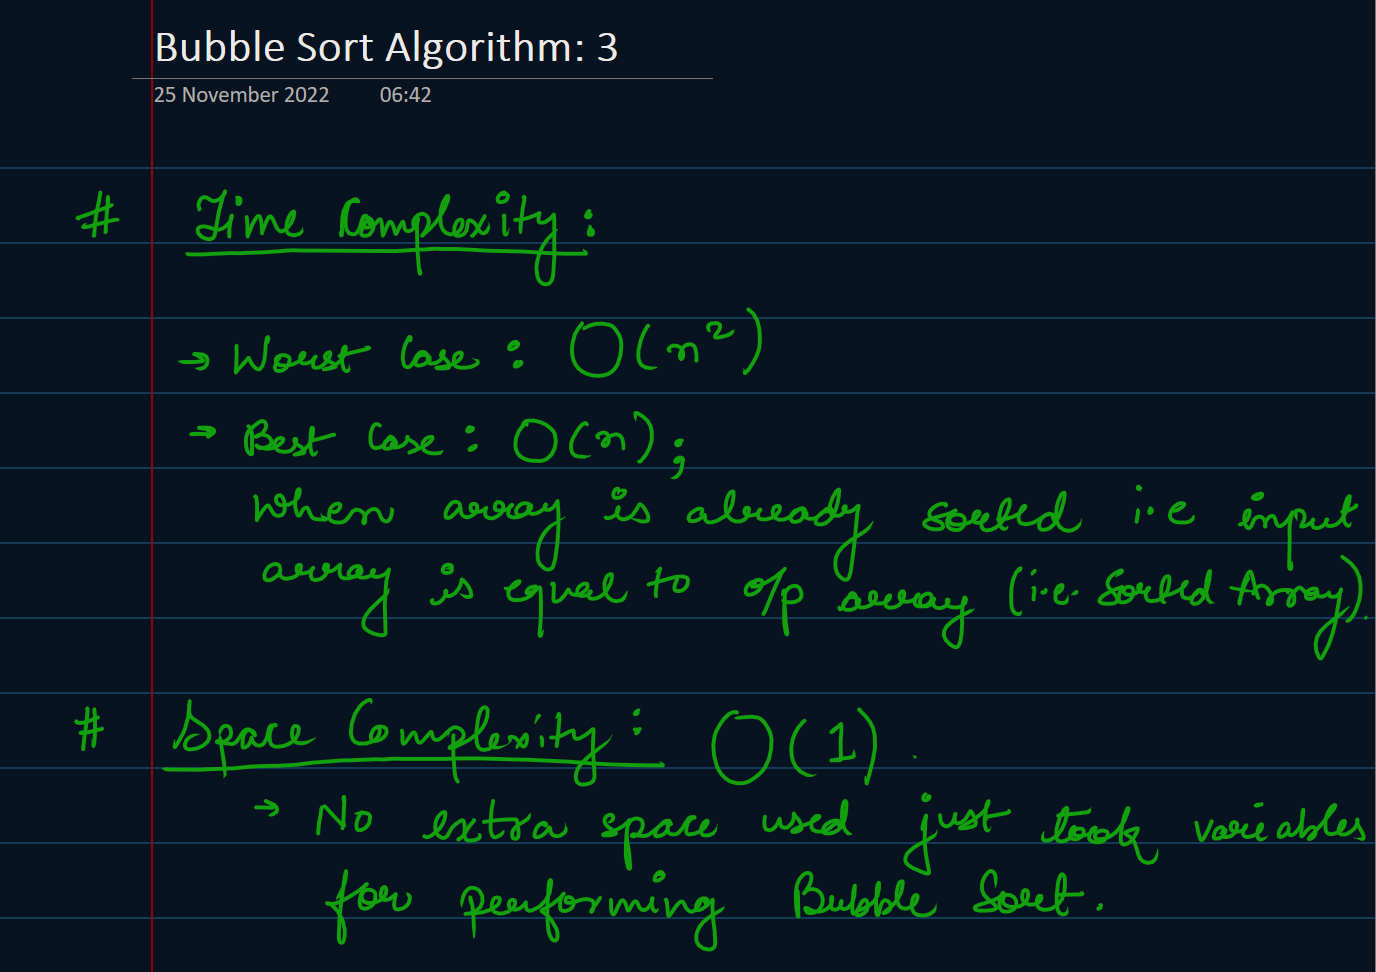 Bubble Sort Algorithm: 3
25 November 2022 06:42
# Time Complexity:
→ Worst Case : O(n²)
→ Best Case : O(n);
When array is already sorted i.e input
array is equal to o/p array (i.e. Sorted Array).
# Space Complexity: O(1).
→ No extra space used just took variables
for performing Bubble Sort.